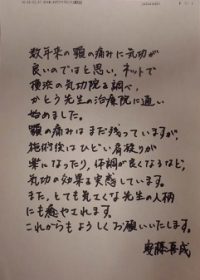 数年来の顎の痛みに気功が
良いのではと思い、ネットで
横浜の気功院を調べ、
かとう先生の治療院に通い
始めました。
顎の痛みはまだ残っていますが、
施術後はひどい肩凝りが
楽になったり、体調が良くなるなど、
気功の効果を実感しています。
また、とても気さくな先生の人柄
にも癒やされます。
これからもよろしくお願いいたします。